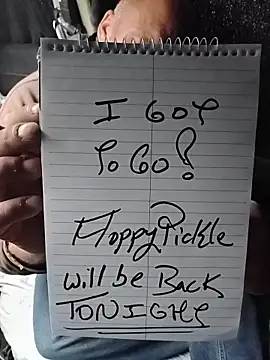 I GOT
To GO!
FloppyPickle
will be Back
TONIGHT